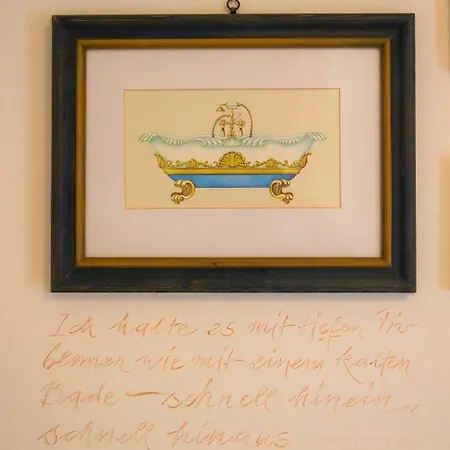 Ich halte es mit tiefen Pro
blemen wie mit einem kalten
Bade – schnell hinein,
schnell hinaus